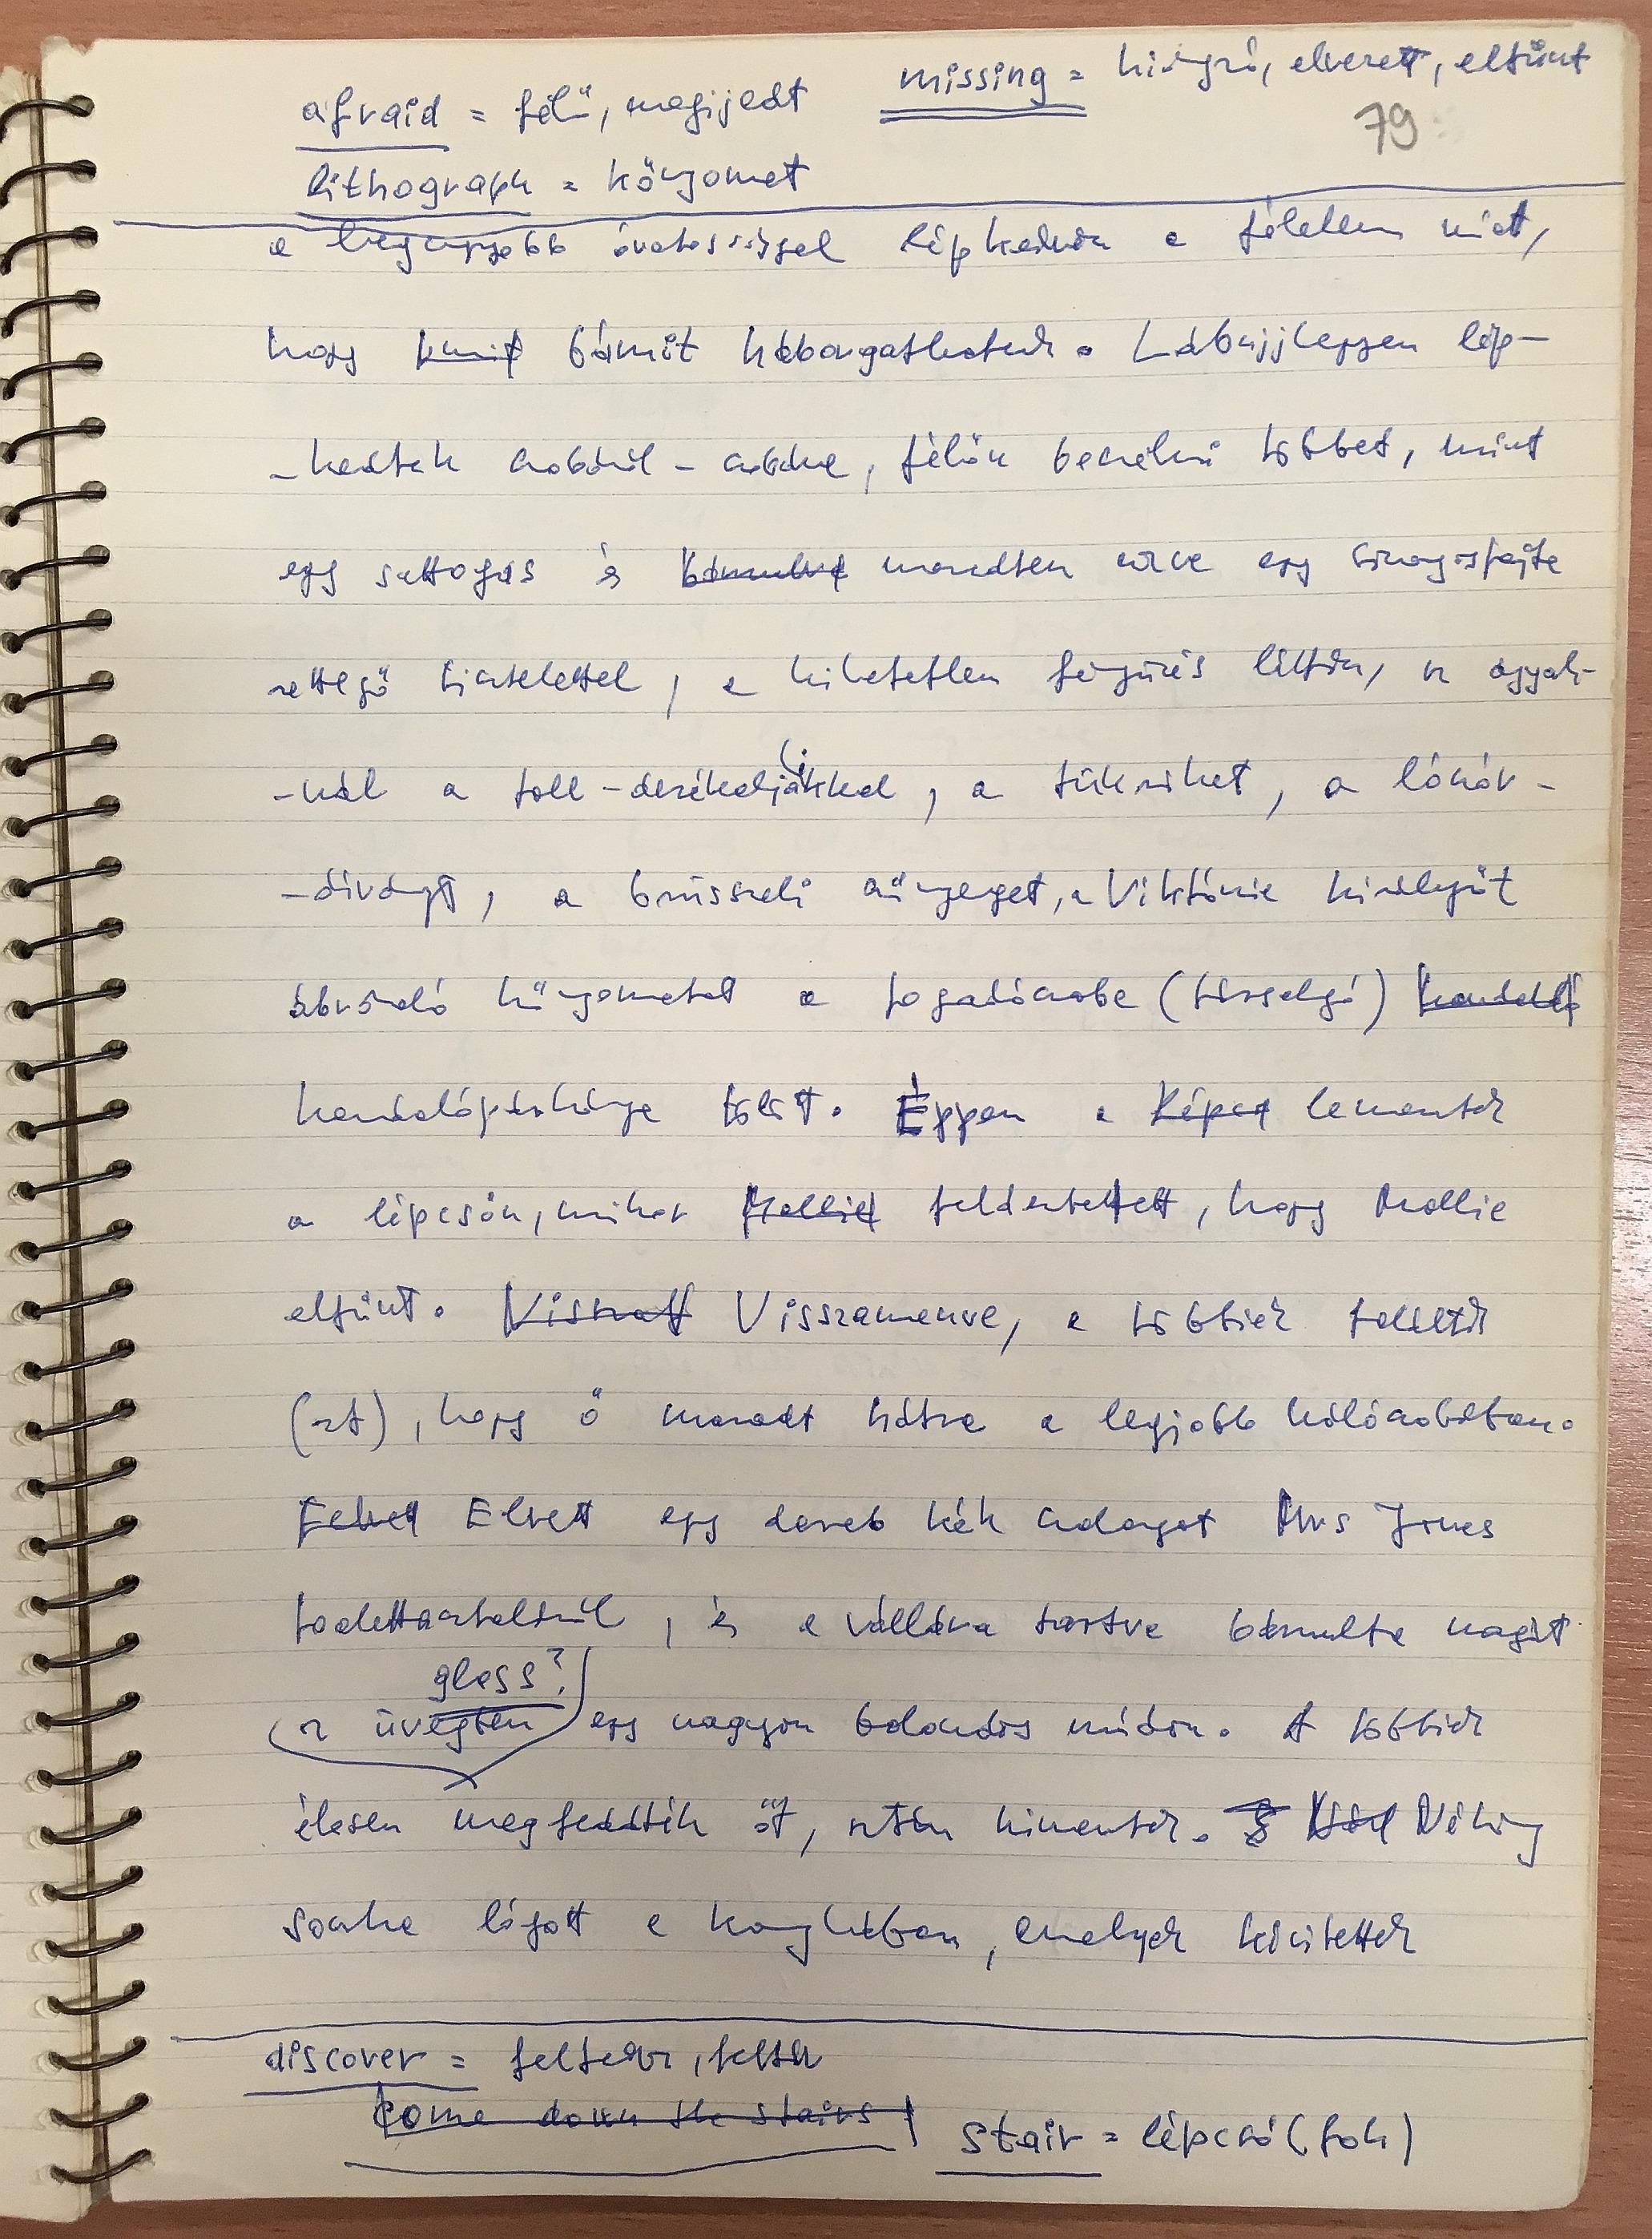 afraid = félő, megijedt
missing = hiányzó, elveszett, eltűnt
79
lithograph = kőnyomat
a legnagyobb óvatossággal lépkedvén a félelem miatt,
hogy bármit háborgathatnak. Lábujjhegyen lép-
-kedtek szobáról-szobára, félőn beszélni többet, mint
egy suttogás és bámulva maradtan nézve egy bizonyosfajta
rettegő tisztelettel, a hihetetlen luxus láttán, az ágyak-
-nál a toll-derékaljakkal, a tükröket, a lószőr-
-díványt, a brüsszeli szőnyeget, a Viktória királynőt
ábrázoló kőnyomatot a fogadószoba (társalgó)
kandallópárkánya fölött. Éppen a lementek
a lépcsőn, mikor Mollie felderítetett, hogy Mollie
eltűnt. Visszamenve, a többiek felelték
(azt), hogy ő maradt hátra a legjobb hálószobában.
Elvett egy darab kék szalagot Mrs Jones
toalettasztaláról, és a vállára tartva bámulta magát
glass?
az üvegben egy nagyon bolondos módon. A többiek
élesen megfeddték őt, aztán kimentek. Néhány
sonka lógott a konyhában, amelyek kivitettek
discover = felfedez, feltár
come down the stairs
stair = lépcső(fok)